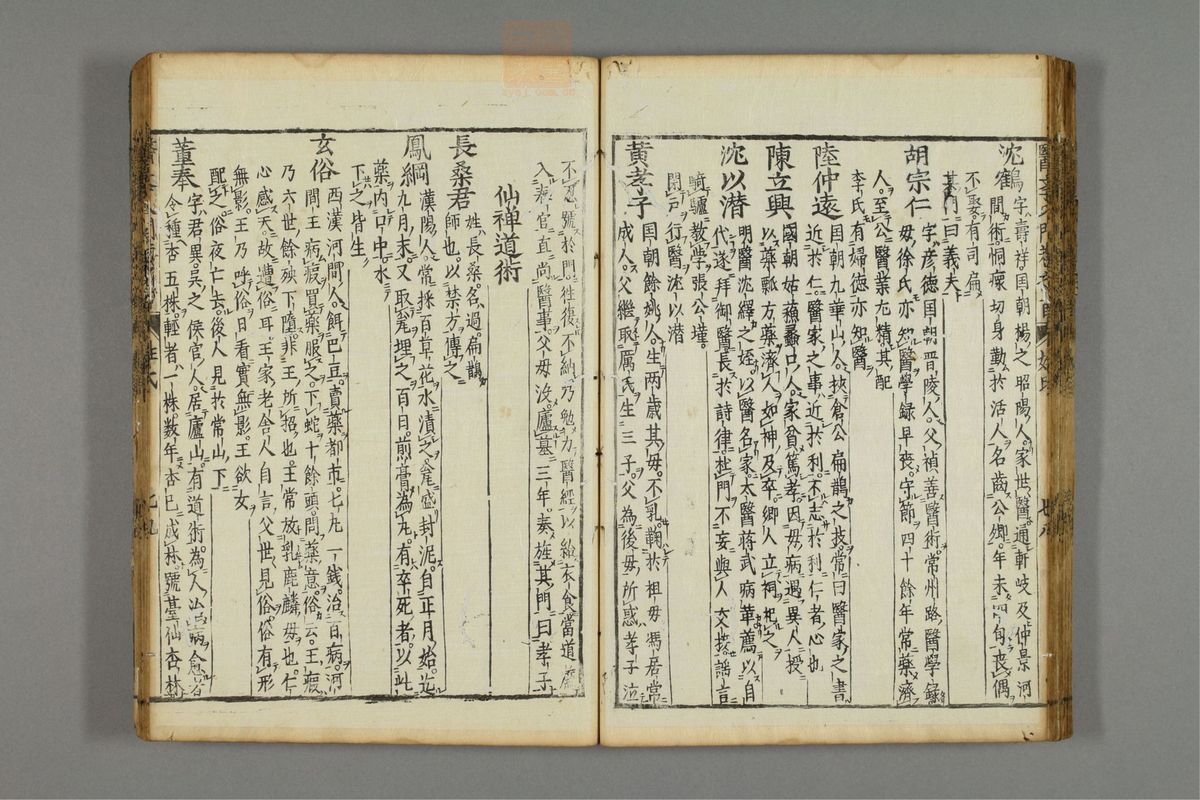 沈鶴 字壽祥国朝楊之昭陽人家世醫通軒岐及仲景河
間術恫瘝切身勤於活人名齒公卿年未四旬喪偶
不娶有司扁
其門曰義夫
胡宗仁 字彦德国朝晋陵人父禎善醫術常州路醫學録
毋徐氏亦知醫學録早喪守節四十餘年常藥濟
人至公醫業尢精其配
李氏有婦德亦知醫
陸仲逺 国朝九華山人挾倉公扁鵲之技常曰醫家之書
近於仁醫家之事近於利不志於利仁者心也
陳立興 國朝姑蘓蠡口人家貧篤孝因毋病遇異人授
以藥瓢方藥濟人如神及卒郷人立祠祀之
沈以潜 明醫沈繹之姪以醫名家太醫蒋武病華薦以自
代遂拜御醫長於詩律杜門不妄與人交搃謡言
騎驢教學張公瑾
閉戸行醫沈以潜
黄孝子 国朝餘姚人生两歳其毋不乳鞠於祖毋馮居常
成人父繼取厲氏生三子父為後毋所惑孝子泣
不忍號於門徃復不納乃勉力醫經以給衣食當道
入泰官直尚醫事父毋沒廬墓三年奏旌其門曰孝子
仙禅道術
長桑君 姓長桑名過扁鵲
師也以禁方傳之
鳳綱 漢陽人常採百草花水漬之瓮盛封泥自正月始迄
九月末又取瓮埋之百日煎膏為丸有卒死者以此
藥内口中水
下之皆生
玄俗 西漢河間人餌巴豆賣藥都市七丸一銭治百病河
間王病瘕買藥服之下蛇十餘頭問藥意俗云王瘕
乃六世餘殃下墮非王所招也王常放乳鹿麟毋也仁
心感天故遭俗耳王家老舎人自言父世見俗俗有形
無影王乃呼俗日看實無影王欲女
配之俗夜亡去後人見於常山下
董奉 字君異吳之侯官人居廬山有道術為人治病愈者
令種杏五株輕者一株数年杏已成林號董仙杏林